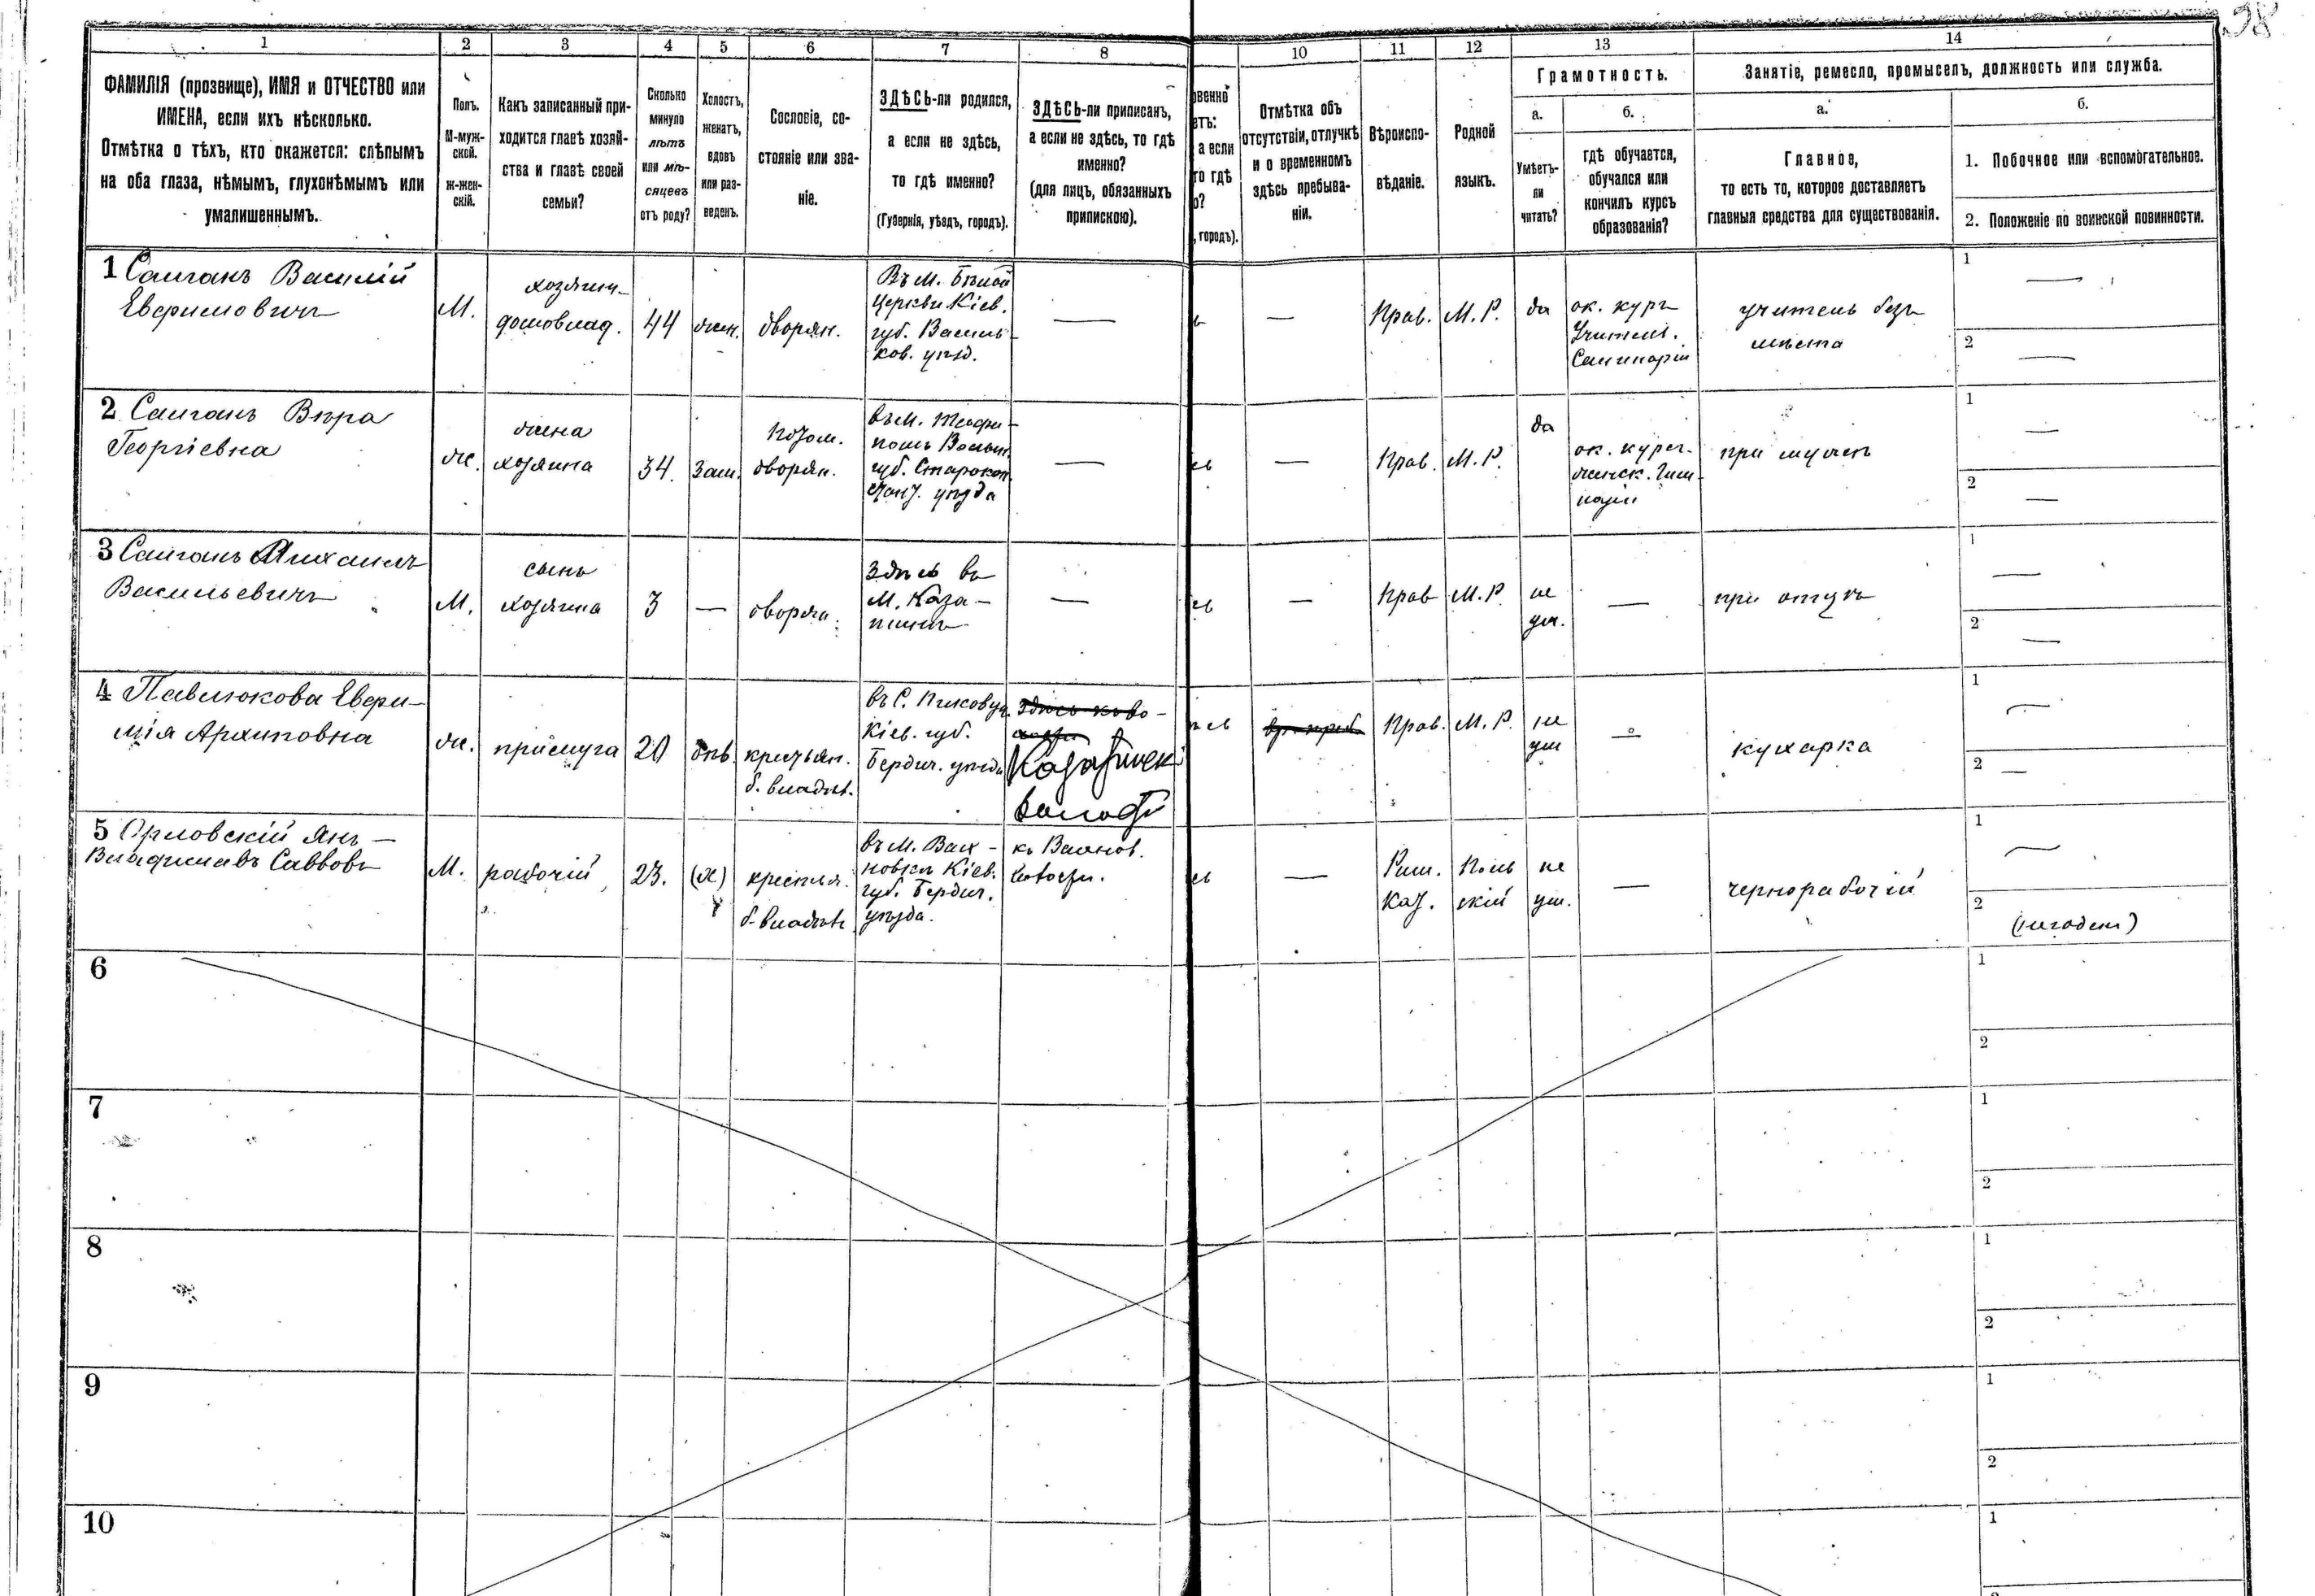 98
1 2 3 4 5 6 7 8 10 11 12 13 14
ФАМИЛІЯ (прозвище), ИМЯ и ОТЧЕСТВО или
ИМЕНА, если ихъ нѣсколько.
Отмѣтка о тѣхъ, кто окажется: слѣпымъ
на оба глаза, нѣмымъ, глухонѣмымъ или
умалишеннымъ.
Полъ.
М-муж-
ской.
Ж-жен-
скій.
Какъ записанный при-
ходится главѣ хозяй-
ства и главѣ своей
семьи?
Сколько
минуло
лѣтъ
или мѣ-
сяцевъ
отъ роду?
Холостъ,
женатъ,
вдовъ
или раз-
веденъ.
Сословіе, со-
стояніе или зва-
ніе.
ЗДѢСЬ-ли родился,
а если не здѣсь,
то гдѣ именно?
(Губернія, уѣздъ, городъ).
ЗДѢСЬ-ли приписанъ,
а если не здѣсь, то гдѣ
именно?
(для лицъ, обязанныхъ
припискою).
овенно
етъ:
а если
то гдѣ
о?
, городъ).
Отмѣтка объ
отсутствіи, отлучкѣ
и о временномъ
здѣсь пребыва-
ніи.
Вѣроиспо-
вѣданіе.
Родной
языкъ.
Грамотность.
а.
Умѣетъ-
ли
читать?
б.
гдѣ обучается,
обучался или
кончилъ курсъ
образованія?
Занятіе, ремесло, промыселъ, должность или служба.
а.
Главное,
то есть то, которое доставляетъ
главныя средства для существованія.
б.
1. Побочное или вспомогательное.
2. Положеніе по воинской повинности.
1 Саиганъ Василій
Евфимовичъ
М.
хозяин-
домовлад.
44
жен.
дворян.
Въ М. Бѣлой
Церкви Кіев.
губ. Василь-
ков. уѣзд.
—
ь
—
Прав.
М. Р.
да
ок. куръ
Учител.
Семинаріи
учитель безъ
мѣста
1 —
2 —
2 Саиганъ Вѣра
Георгіевна
ж.
жена
хозяина
34.
зам.
потом.
дворян.
въ М. Теофи-
поль Волын.
губ. Старокон
стант. уѣзда
—
сь
—
Прав.
М. Р.
да
ок. курс.
женск. Гим-
назіи
при мужѣ
1 —
2 —
3 Саиганъ Михаилъ
Васильевичъ
М.
сынъ
хозяина
3
—
дворян.
Здѣсь въ
М. Каза-
тинѣ
—
сь
—
Прав
М. Р.
не
ум.
—
при отцѣ
1 —
2 —
4 Павлюкова Евфи-
мія Архиповна
ж.
прислуга
20
дѣв.
крестьян.
б. владѣл.
въ С. Пиковц.
Кіев. губ.
Бердич. уѣзда
Казатинск
волости
сь
Прав.
М. Р.
не
ум
—
кухарка
1 —
2 —
5 Орловскій Янъ-
Владиславъ Саввовъ
М.
рабочій
23.
(х)
крестья.
б. владѣл.
въ М. Вах-
новкѣ Кіев.
губ. Бердич.
уѣзда.
къ Вахнов.
волости.
сь
—
Рим.
Каѳ.
Поль
скій
не
ум.
—
чернорабочій
1 —
2 (негоденъ)
6
1
2
7
1
2
8
1
2
9
1
2
10
1